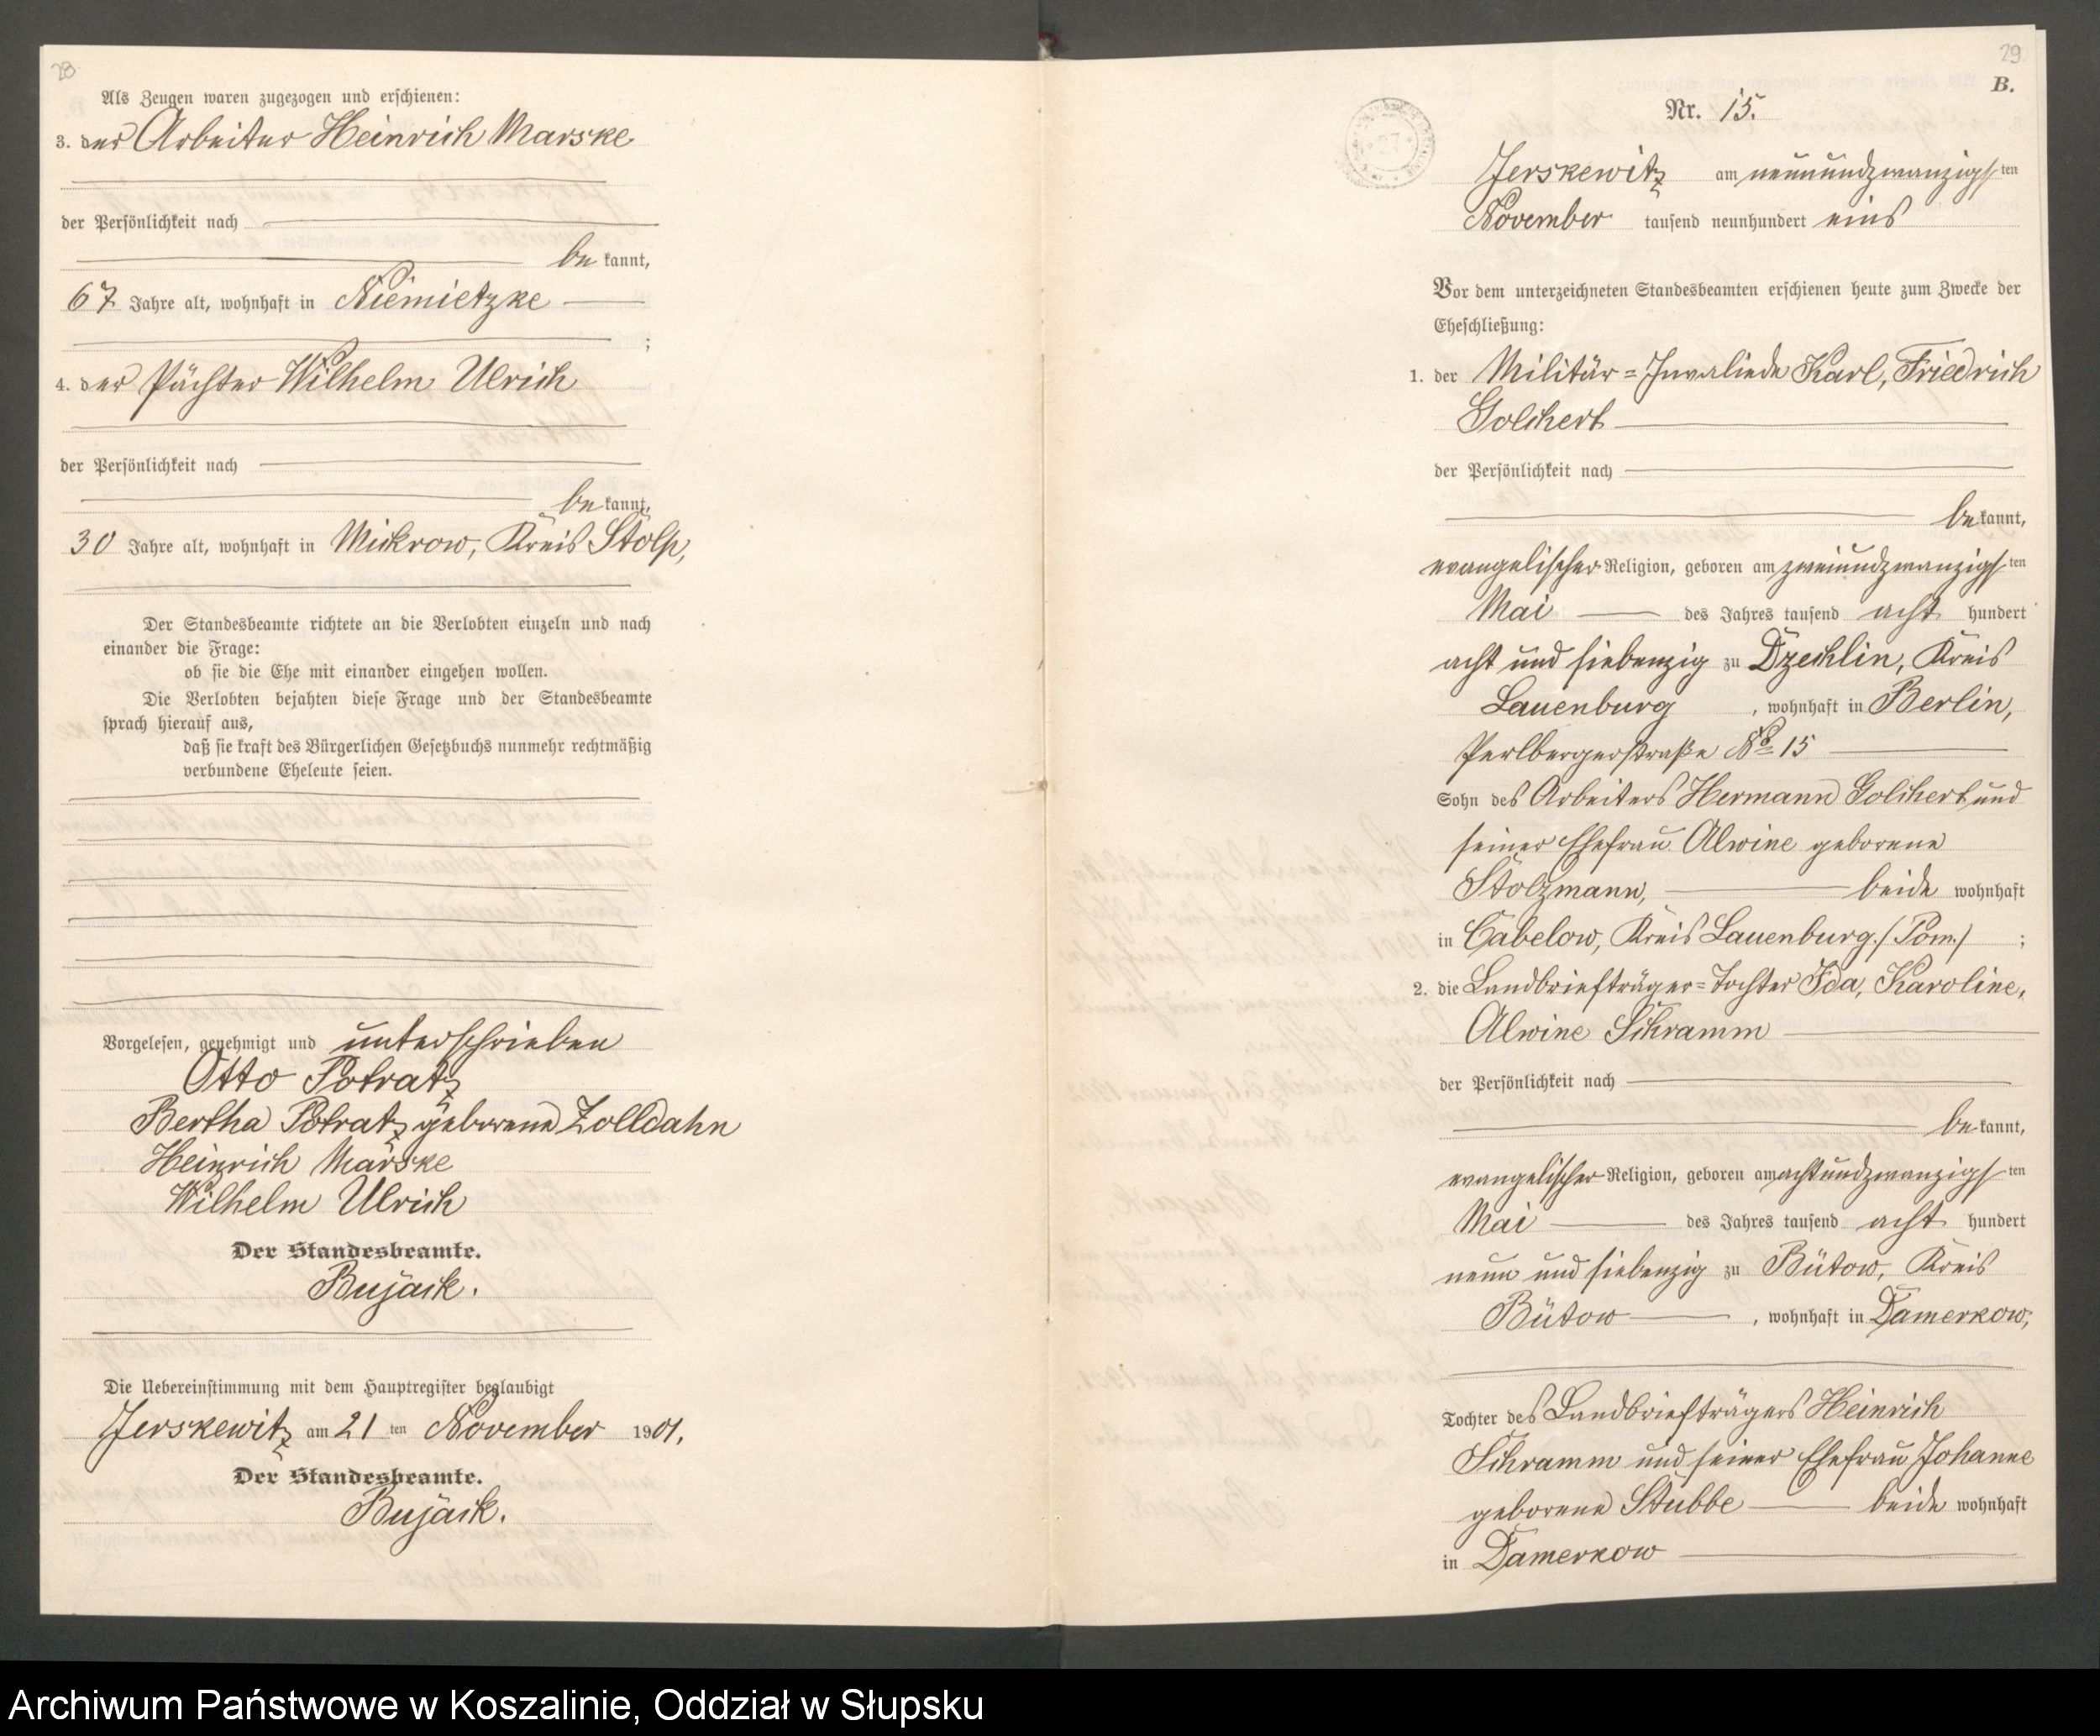 28
Als Zeugen waren zugezogen und erschienen:
3. der Arbeiter Heinrich Marske
der Persönlichkeit nach
be kannt,
67 Jahre alt, wohnhaft in Niemietzke
;
4. der Pächter Wilhelm Ulrich
der Persönlichkeit nach
be kannt,
30 Jahre alt, wohnhaft in Mickrow, Kreis Stolp,
Der Standesbeamte richtete an die Verlobten einzeln und nach
einander die Frage:
ob sie die Ehe mit einander eingehen wollen.
Die Verlobten bejahten diese Frage und der Standesbeamte
sprach hierauf aus,
daß sie kraft des Bürgerlichen Gesetzbuchs nunmehr rechtmäßig
verbundene Eheleute seien.
Vorgelesen, genehmigt und unterschrieben
Otto Potratz
Bertha Potratz geborene Zolldahn
Heinrich Marske
Wilhelm Ulrich
Der Standesbeamte.
Bujack.
Die Uebereinstimmung mit dem Hauptregister beglaubigt
Jerskewitz am 21 ten November 1901.
Der Standesbeamte.
Bujack.
29
B.
Nr. 15.
Jerskewitz am neunundzwanzigsten
November tausend neunhundert eins
Vor dem unterzeichneten Standesbeamten erschienen heute zum Zwecke der
Eheschließung:
1. der Militär=Invaliede Karl, Friedrich
Golchert
der Persönlichkeit nach
be kannt,
evangelischer Religion, geboren am zweiundzwanzigsten
Mai des Jahres tausend acht hundert
acht und siebenzig zu Dzechlin, Kreis
Lauenburg, wohnhaft in Berlin,
Perlbergerstraße No 15
Sohn des Arbeiters Hermann Golchert und
seiner Ehefrau Alwine geborene
Stolzmann, beide wohnhaft
in Cabelow, Kreis Lauenburg./Pom./ ;
2. die Landbriefträger=Tochter Ida, Karoline,
Alwine Schramm
der Persönlichkeit nach
be kannt,
evangelischer Religion, geboren am achtundzwanzigsten
Mai des Jahres tausend acht hundert
neun und siebenzig zu Bütow, Kreis
Bütow, wohnhaft in Damerkow,
Tochter des Landbriefträgers Heinrich
Schramm und seiner Ehefrau Johanne
geborene Stubbe beide wohnhaft
in Damerkow
Archiwum Państwowe w Koszalinie, Oddział w Słupsku